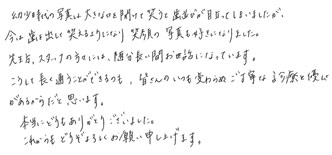 幼少時代の写真は大きな口を開けて笑うと歯並びが目立ってしまいましたが、
今は歯を出して笑えるようになり笑顔の写真も好きになりました。
先生、スタッフの方々には、随分長い間お世話になっています。
こうして長く通うことができるのも、皆さんのいつも変わらぬご丁寧なる診療と優しさ
があるからだと思います。
本当にどうもありがとうございました。
これからもどうぞよろしくお願い申し上げます。